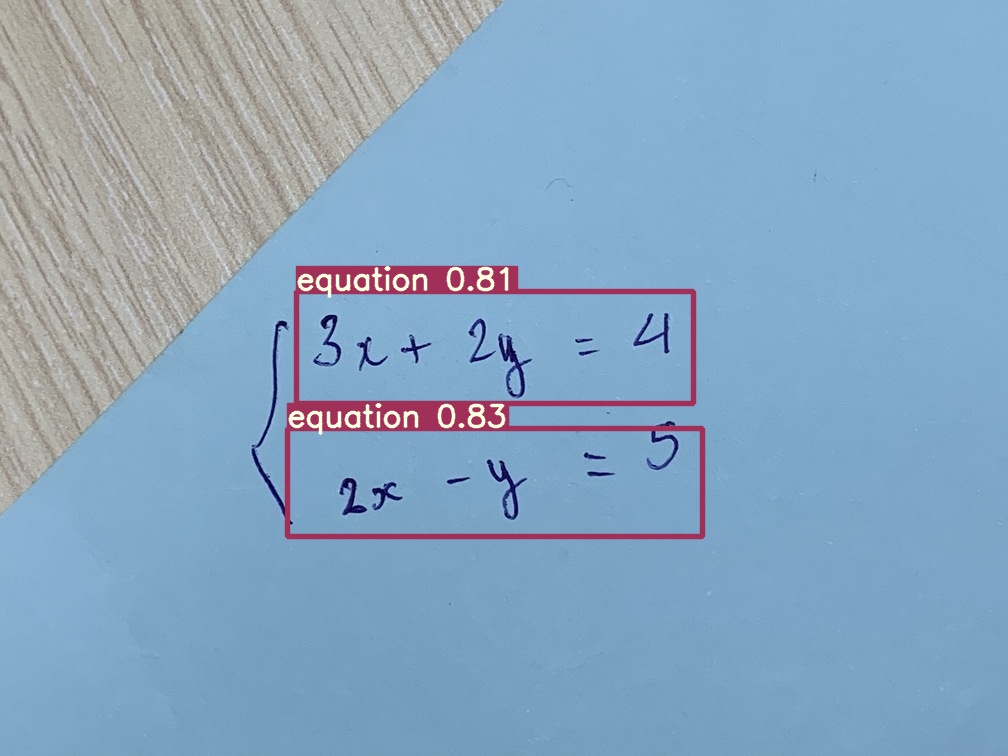 equation 0.81
3x + 2y = 4
equation 0.83
2x - y = 5